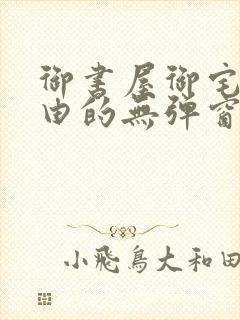 御書屋御宅
由的無彈窗
小飛鳥大和田